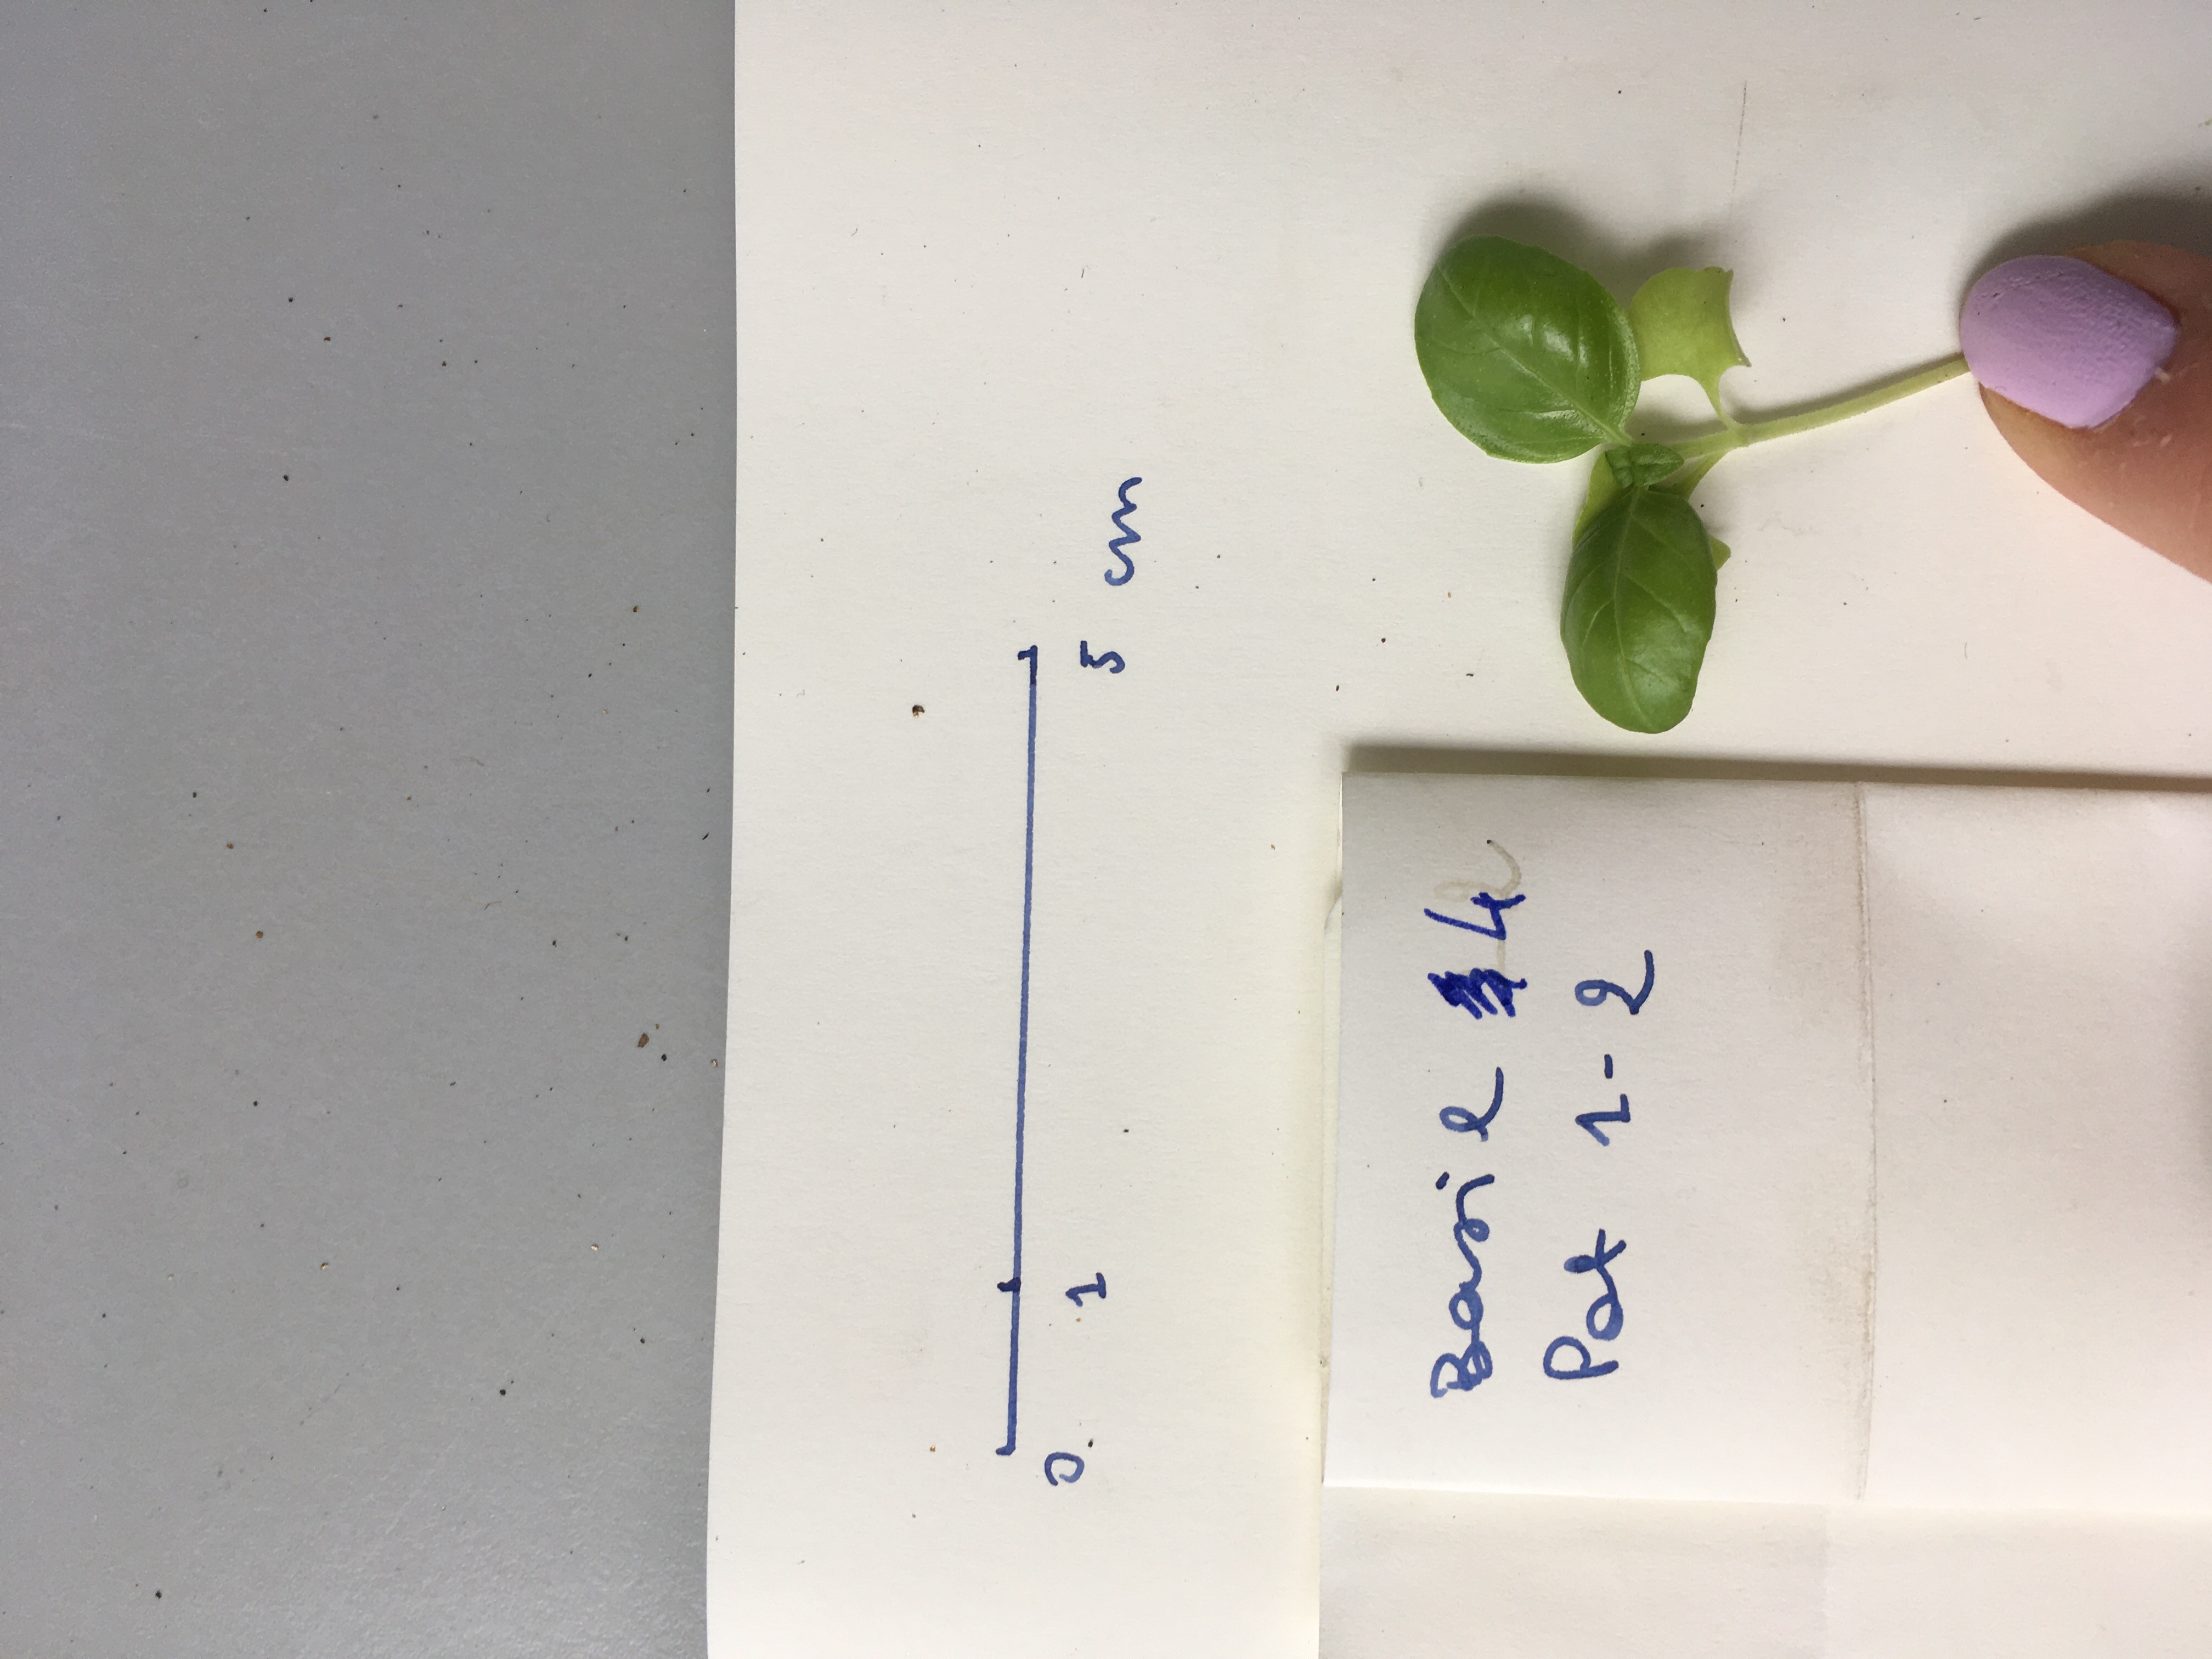 0 1 5 cm
Basil 4
Pot 1-2